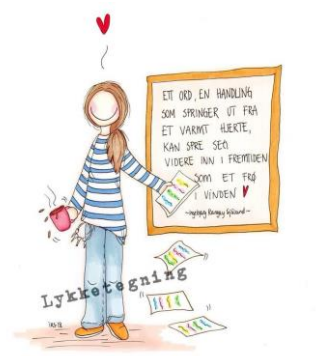 ETT ORD, EN HANDLING
SOM SPRINGER UT FRA
ET VARMT HJERTE,
KAN SPRE SEG
VIDERE INN I FREMTIDEN
SOM ET FRØ
I VINDEN
Lykketegning